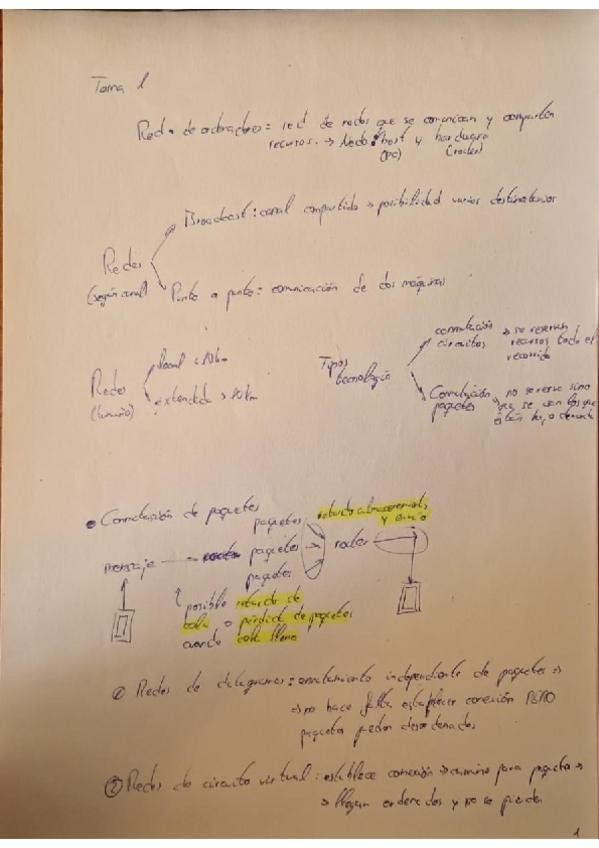 Tema 1
Red de ordenadores = red de nodos que se comunican y comparten
recursos. → Nodo: host y hardware
(PC) (router)
Broadcast: canal compartido → posibilidad varios destinatarios
Redes
(según canal)
Punto a punto: comunicación de dos máquinas
Redes
(tamaño)
local < 10 km
extendida > 10 km
Tipos
tecnología
conmutación
circuitos
→ se reservan
recursos todo el
recorrido
Conmutación
paquetes
→ no se reserva sino
que se usan los que
están bajo demanda
• Conmutación de paquetes
retardo almacenamiento
y envío
mensaje
paquetes
paquetes
paquetes
router
posible retardo de
cola o pérdida de paquetes
cuando cola llena
① Redes de datagramas: enrutamiento independiente de paquetes →
→ no hace falta establecer conexión PERO
paquetes pueden desordenados
② Redes de circuito virtual: establece conexión → camino para paquetes →
→ llegan ordenados y no se pierden
1